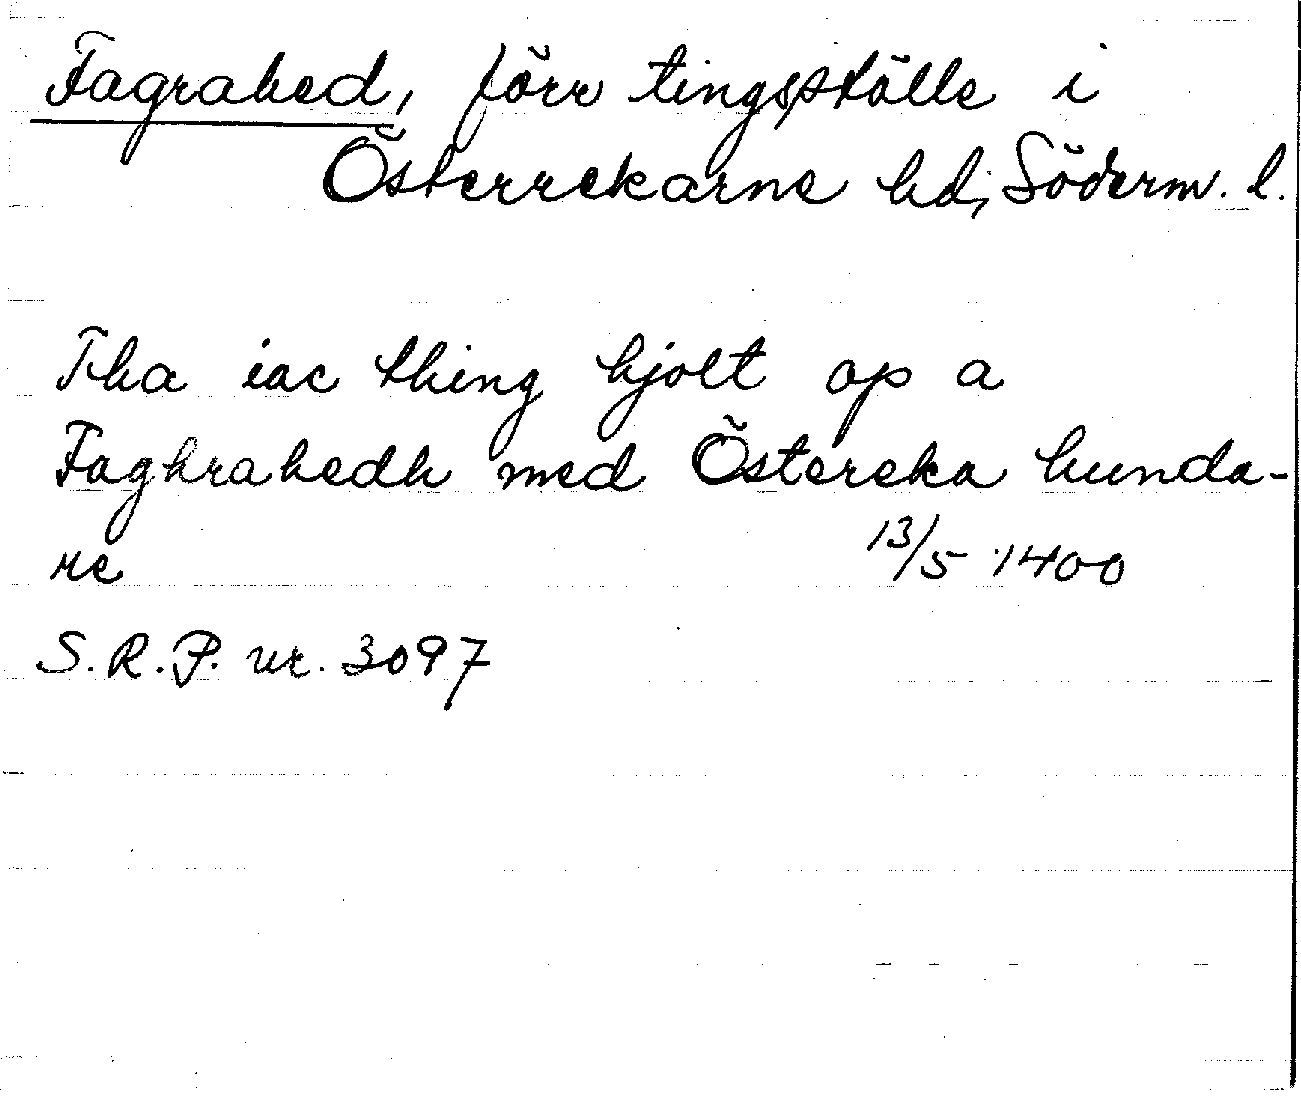 Fagrahed, förr tingsställe i
Österrekarne hd, Söderm. l.
Tha iac thing hjolt op a
Faghrahedh med Östereka hunda-
re 13/5 1400
S.R.P. nr. 3097